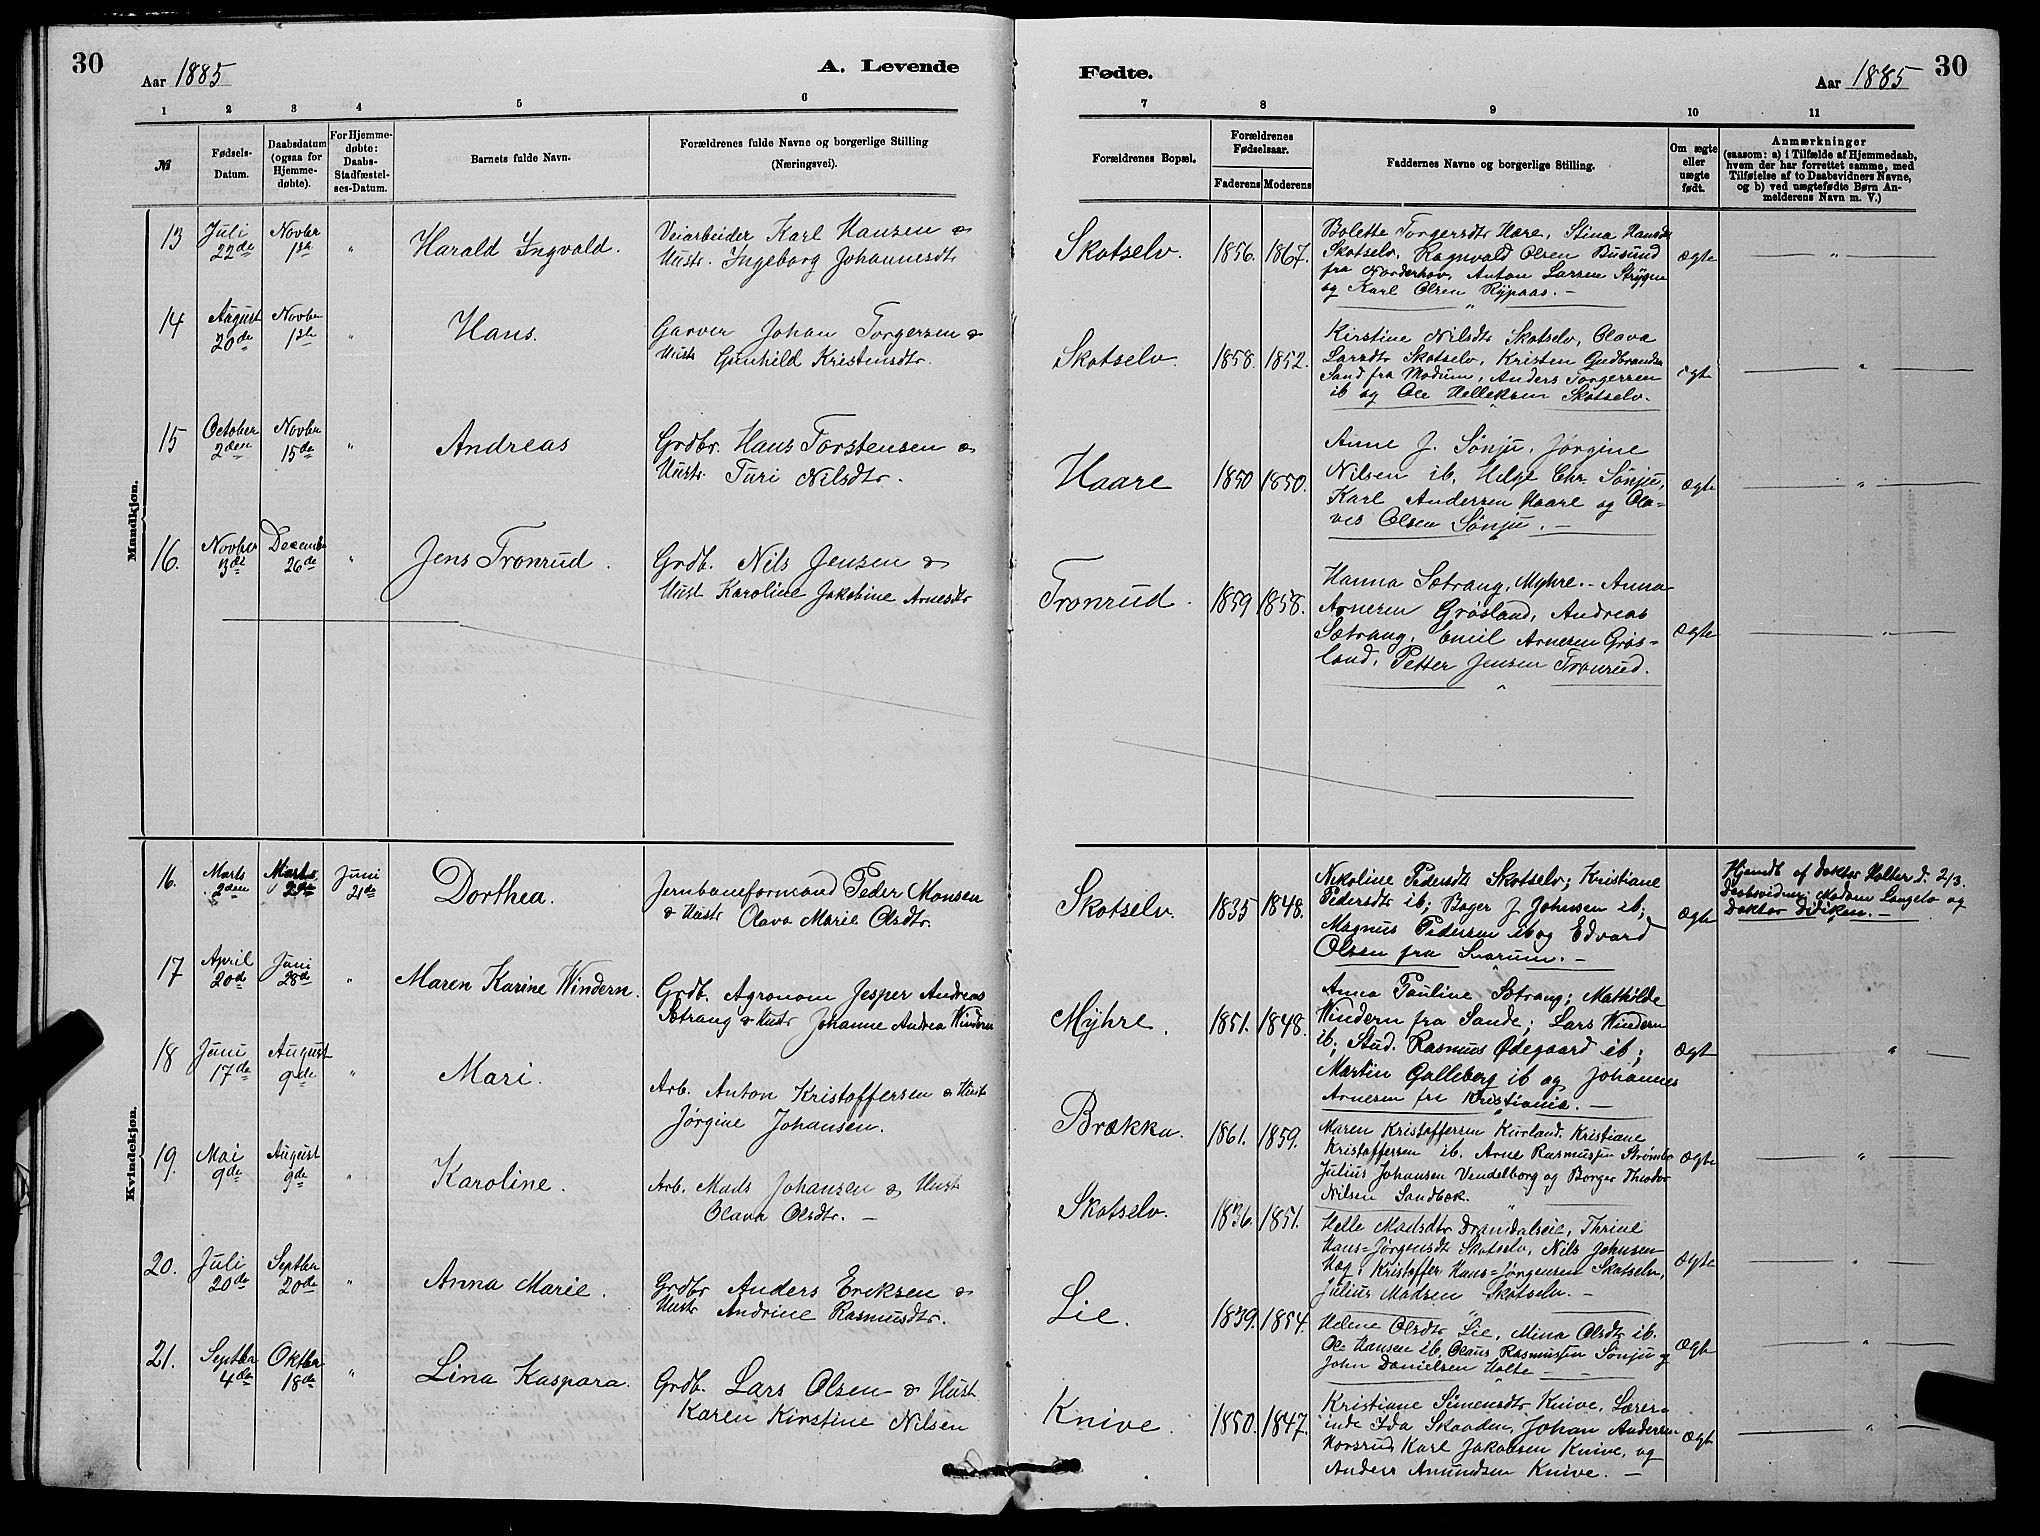 30
Aar 1885
A. Levende
1 2 3 4 5 6
№
Fødsels-
Datum.
Daabsdatum
(ogsaa for
Hjemme-
døbte).
For Hjemme-
døbte:
Daabs-
Stadfæstel-
ses-Datum.
Barnets fulde Navn.
Forældrenes fulde Navne og borgerlige Stilling
(Næringsvei).
Mandkjøn.
13 Juli Novber
22de 1ste "
Harald Ingvald.
Veiarbeider Karl Hansen &
Hustr. Ingeborg Johannesdtr
14 August Novbr
20de 1ste "
Hans.
Garver Johan Torgersen &
Hustr Gunhild Kristensdtr.
15 October Novber
2den 15de "
Andreas
Grdbr. Hans Torstensen &
Hustr Turi Nilsdtr.
16. Novber December
3die 26de "
Jens Tronrud.
Grdb. Nils Jensen &
Hust Karoline Jakobine Arnesdtr
Kvindekjøn.
16. Marts Marts Juni
2den 2den 21de
Dorthea.
Jernbaneformand Peder Monsen
& Hustr Olava Marie Olsdtr.
17 April Juni
20de 28de "
Maren Karine Windern.
Grdb. Agronom Jesper Andreas
Sætrang & Hustr Johanne Andrea Windern
18 Juni August
17de 9de "
Mari.
Arb. Anton Kristoffersen & Hust
Jørgine Johansen.
19. Mai August
9de 9de "
Karoline.
Arb. Mads Johansen & Hust
Olava Olsdtr. —
20. Juli Septber
20de 20de "
Anna Marie.
Grdbr Anders Eriksen &
Hustr Andrine Rasmusdtr.
21. Septber Oktber
4de 18de "
Lina Kaspara.
Grdb. Lars Olsen & Hust
Karen Kirstine Nilsen
Fødte.
Aar 1885
30
7 8 9 10 11
Forældrenes Bopæl.
Forældrenes
Fødselsaar.
Faderens Moderens
Faddernes Navne og borgerlige Stilling.
Om ægte
eller
uægte
født.
Anmærkninger
(saasom: a) i Tilfælde af Hjemmedaab,
hvem der har forrettet samme, med
Tilføielse af to Daabsvidners Navne,
og b) ved uægtefødte Børn An-
melderens Navn m. V.)
Skotselv. 1856. 1867.
Bolette Torgersdtr Hare, Stina Hansdtr
Skotselv, Ragnvald Olsen Busund
fra Norderhov, Anton Larsen Strygen
og Karl Olsen Rypaas. —
Ægte "
Skotselv. 1858. 1852.
Kirstine Nilsdtr Skotselv, Olava
Larsdtr Skotselv, Kristen Gudbrandsen
Sand fra Modum, Anders Torgersen
ib og Ole Helleksen Skotselv.
Ægte "
Haare 1850 1850.
Anne J. Sønju, Jørgine
Nilsen ib, Helge Chr. Sønju,
Karl Andersen Haare og Ola-
ves Olsen Sønju. —
Ægte "
Tronrud. 1859 1858.
Hanna Sætrang, Myhre. — Anna
Arnesen Grøsland, Andreas
Sætrang, Emil Arnesen Grøs-
land, Petter Jensen Tronrud.
Ægte "
Skotselv. 1835 1848.
Nikoline Pedersdtr Skotselv; Kristiane
Pedersdtr ib; Bager J. Johnsen ib;
Magnus Pedersen ib og Edvard
Olsen fra Snarum. —
Ægte
Hjemdt af Doktor Holter d. 2/3.
Daabsvidner: Madam Langelo og
Doktor Didiken. —
Myhre. 1851. 1848.
Anna Pauline Sætrang; Mathilde
Windern fra Sande; Lars Windern
ib; Stud. Rasmus Ødegaard ib;
Martin Galleberg ib og Johannes
Arnesen fra Kristiania. —
Ægte "
Brækka. 1861. 1859.
Maren Kristoffersen Kurland, Kristiane
Kristoffersen ib. Arne Rasmussen Strømbo
Julius Johansen Vendelborg og Borger Theodor
Nilsen Sandbæk.
Ægte "
Skotselv. 1836. 1851.
Helle Madsdtr Dramdalseie, Thrine
Hans-Jørgensdt Skotselv, Nils Johnsen
Hag, Kristoffer Hans-Jørgensen Skotselv,
Julius Madsen Skotselv. —
Ægte "
Lie. 1839. 1854.
Helene Olsdtr Lie, Mina Olsdtr ib.
Ole Hansen ib, Olaus Rasmussen Sønju og
John Danielsen Holte —
Ægte "
Knive. 1850. 1847.
Kristiane Simensdtr Knive, Lærer-
inde Ida Skaaden, Johan Andersen
Horsrud Karl Jakobsen Knive, og
Anders Amundsen Knive. —
Ægte "